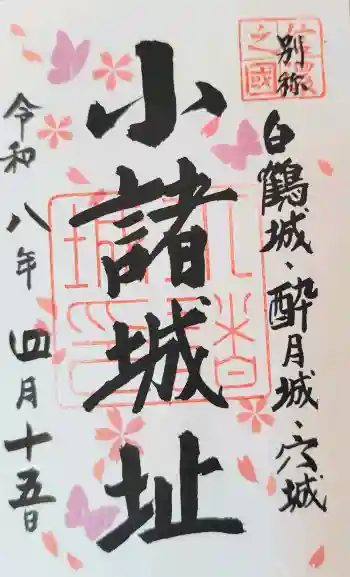 別称
白鶴城・酔月城・穴城
小諸城址
令和八年四月十五日